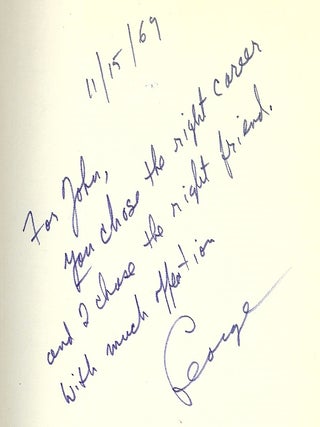 11/15/69
For John,
You chose the right career
and I chose the right friend.
With much affection
George